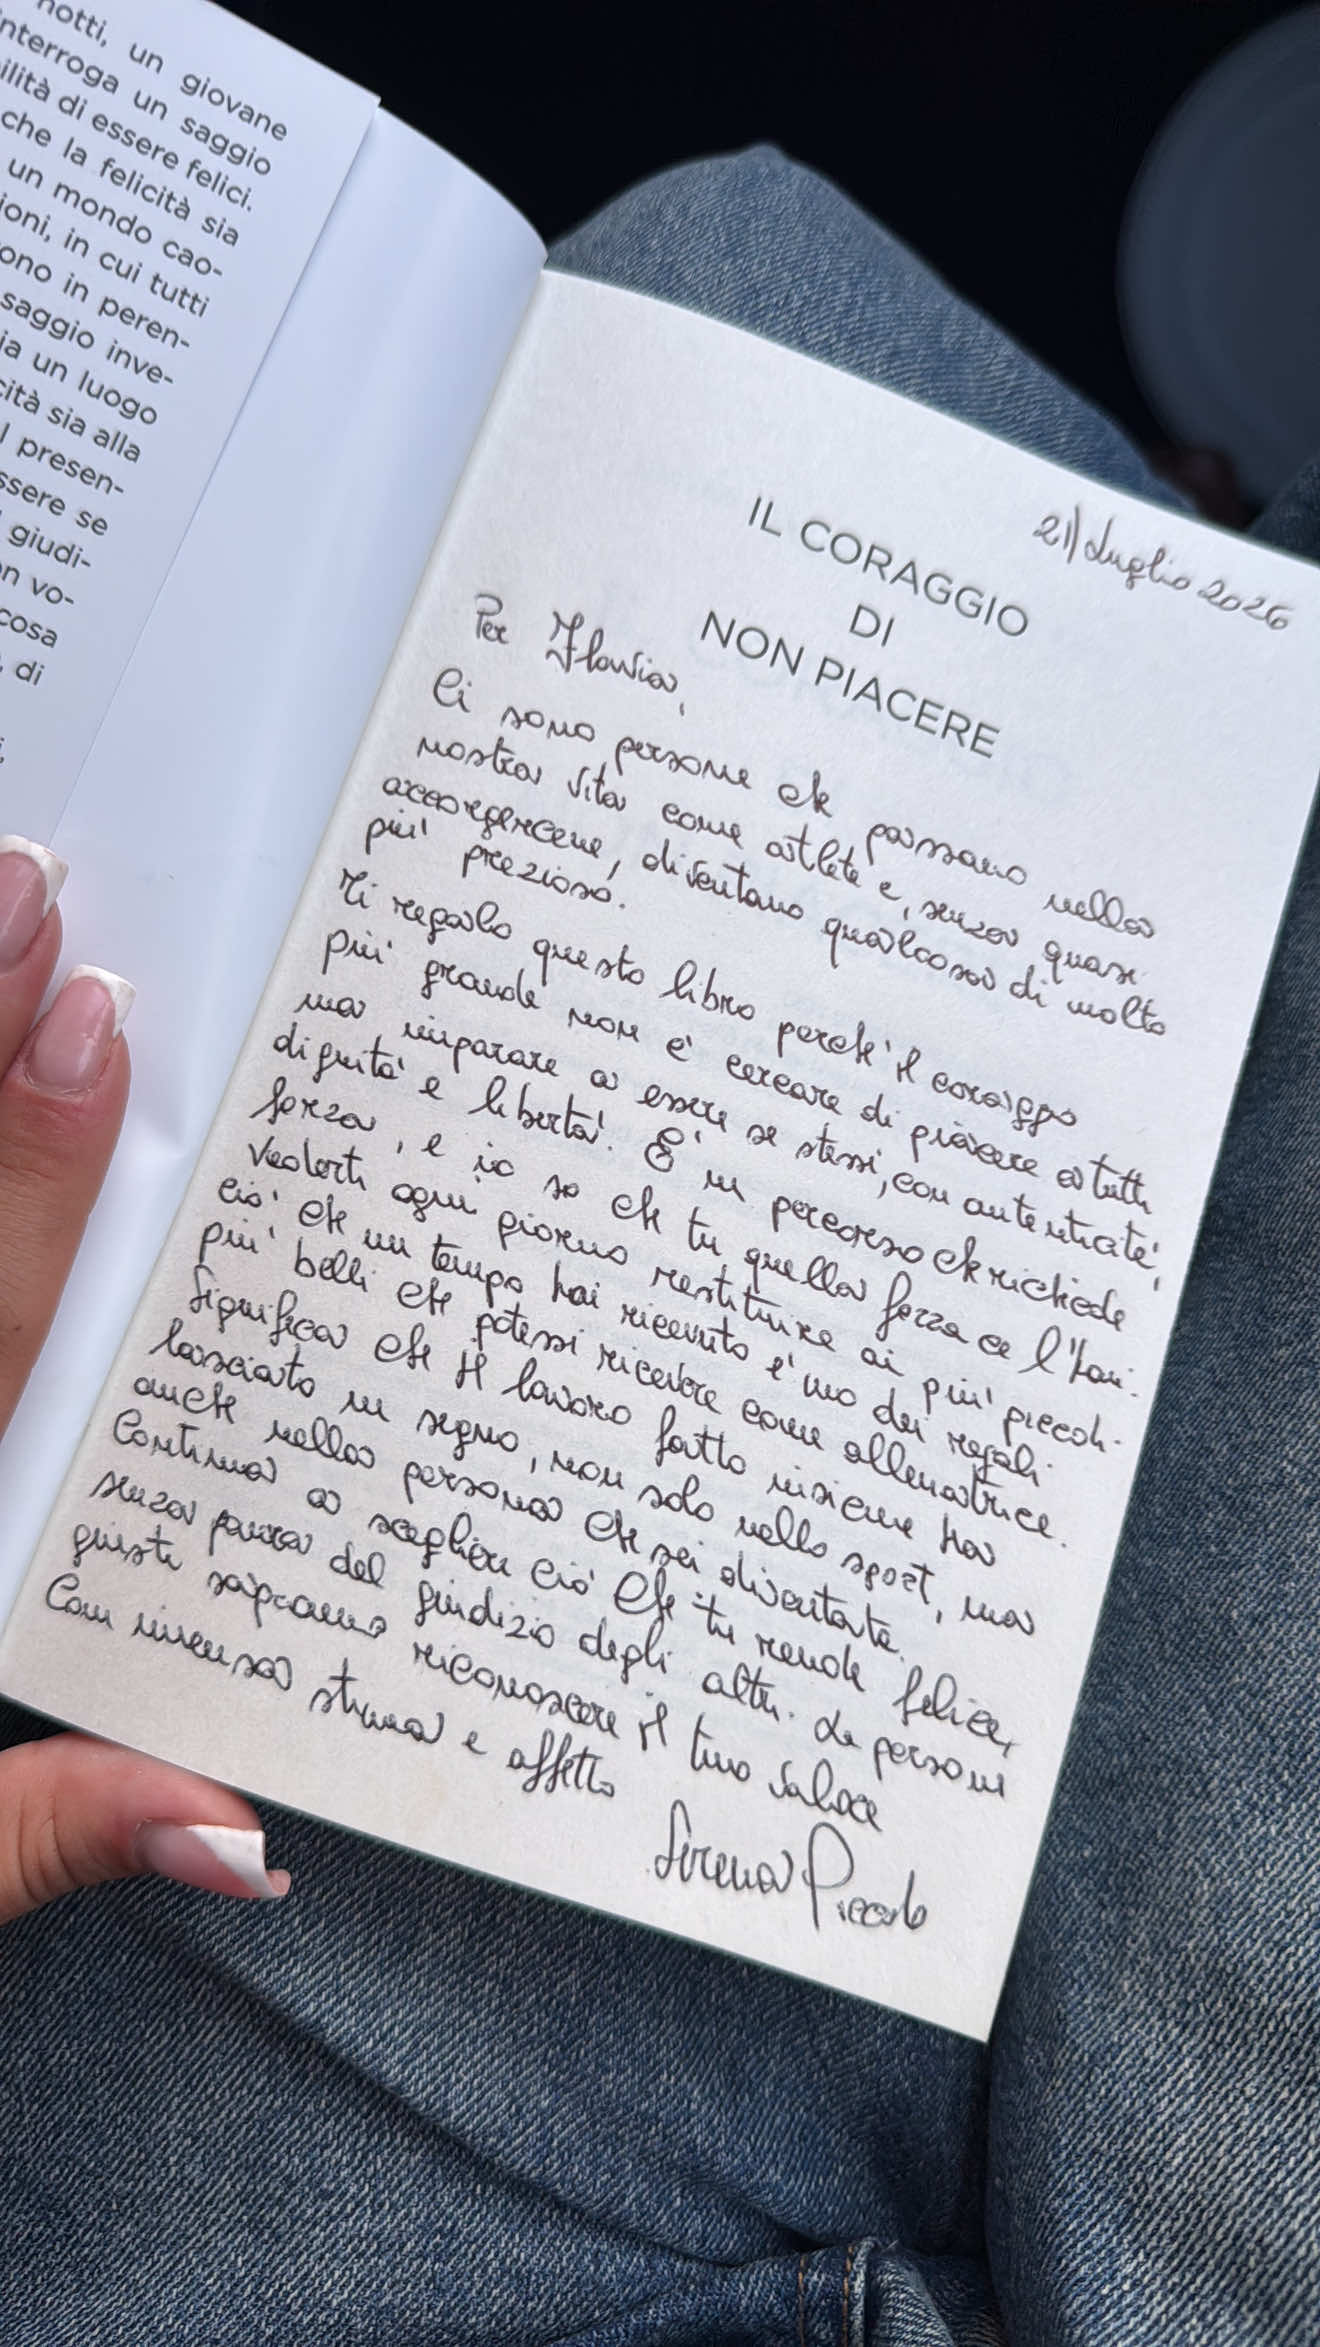 notti, un giovane
interroga un saggio
ilità di essere felici.
che la felicità sia
un mondo cao-
ioni, in cui tutti
ono in peren-
saggio inve-
ia un luogo
cità sia alla
l presen-
ssere se
giudi-
n vo-
cosa
, di
21/Luglio 2026
IL CORAGGIO
DI
NON PIACERE
Per Flavia,
Ci sono persone che passano nella
nostra vita come atlete e, senza quasi
accorgercene, diventano qualcosa di molto
più prezioso.
Ti regalo questo libro perché il coraggio
più grande non è cercare di piacere a tutti
ma imparare a essere se stessi, con autenticità,
dignità e libertà. È un percorso che richiede
forza, e io so che tu quella forza ce l'hai.
Vederti ogni giorno restituire ai più piccoli
ciò che un tempo hai ricevuto è uno dei regali
più belli che potessi ricevere come allenatrice.
Significa che il lavoro fatto insieme ha
lasciato un segno, non solo nello sport, ma
anche nella persona che sei diventata.
Continua a scegliere ciò che ti rende felice,
senza paura del giudizio degli altri. Le persone
giuste sapranno riconoscere il tuo valore
Con immensa stima e affetto
Serena Piccolo